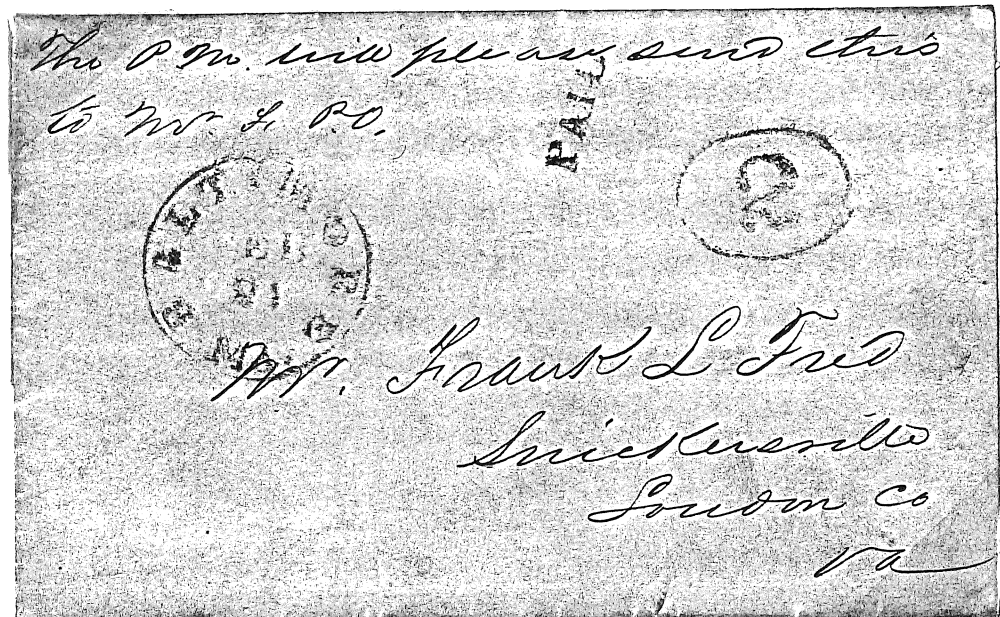 The P M. will please send this
to Mr. F. P.O.
PAID
2
BALTIMORE
Mr. Frank L Fred
Snickersville
Loudon Co
Va